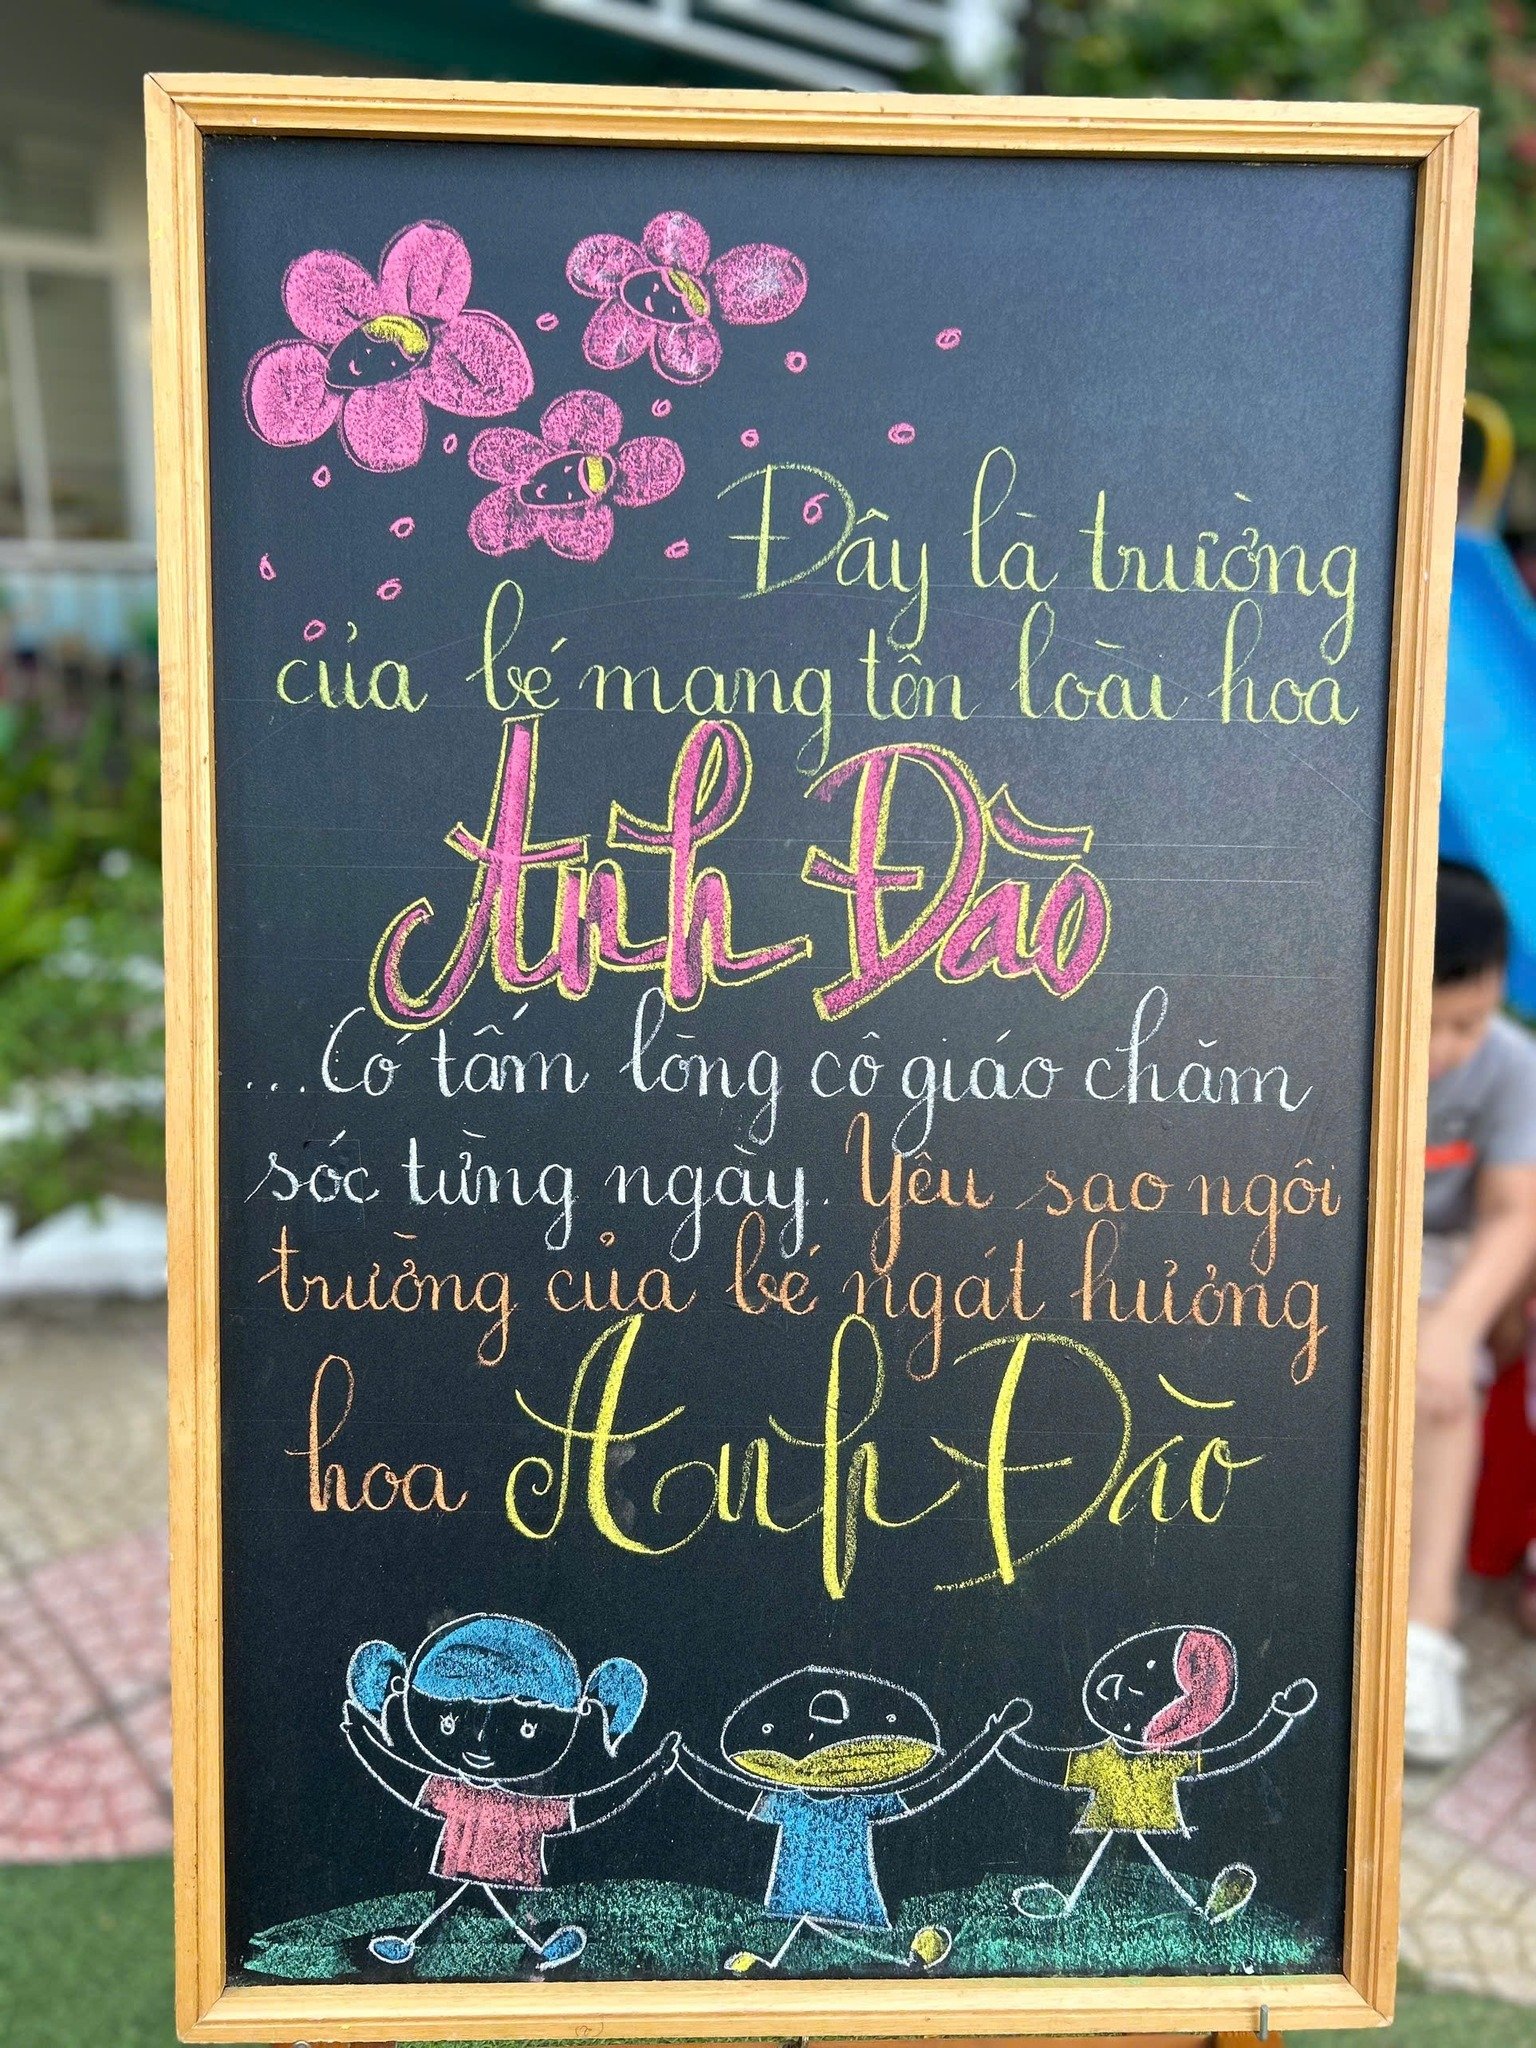 Đây là trường
của bé mang tên loài hoa
Anh Đào
...Có tấm lòng cô giáo chăm
sóc từng ngày. Yêu sao ngôi
trường của bé ngát hương
hoa Anh Đào